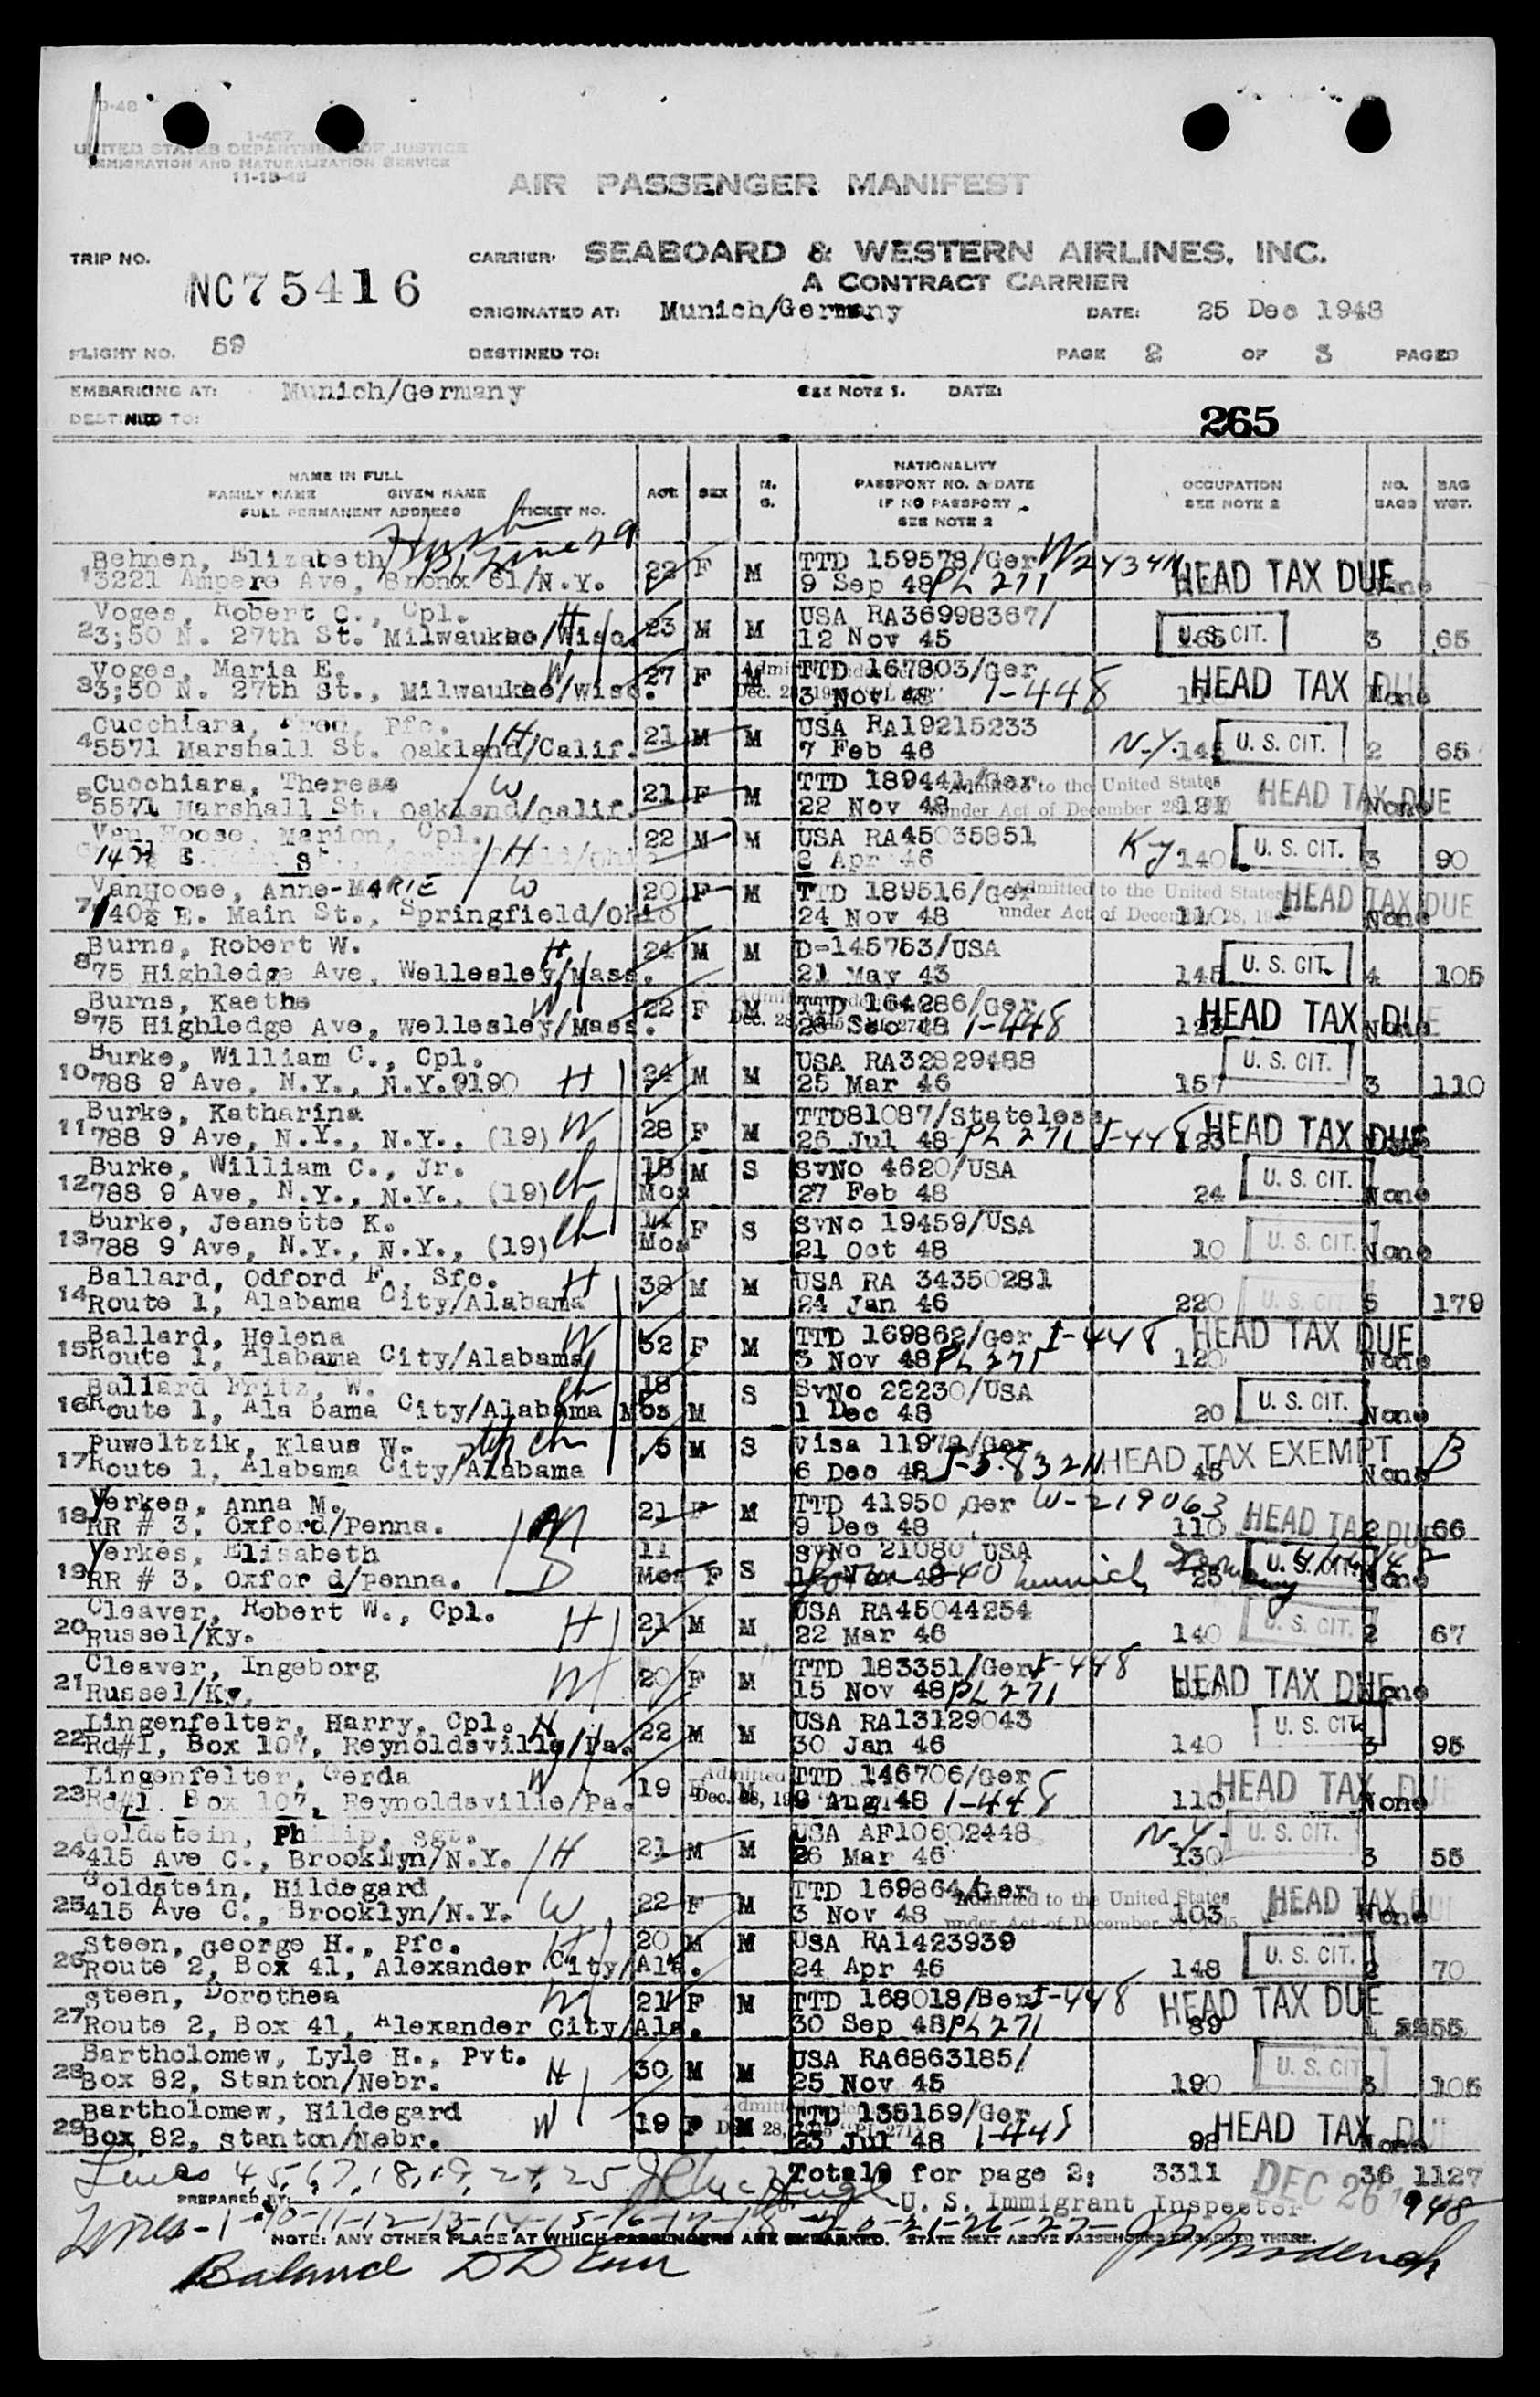 9-48
I-467
UNITED STATES DEPARTMENT OF JUSTICE
IMMIGRATION AND NATURALIZATION SERVICE
11-18-48
AIR PASSENGER MANIFEST
TRIP NO. NC75416 CARRIER: SEABOARD & WESTERN AIRLINES, INC.
A CONTRACT CARRIER
ORIGINATED AT: Munich/Germany DATE: 25 Dec 1948
FLIGHT NO. 59 DESTINED TO: PAGE 2 OF 3 PAGES
EMBARKING AT: Munich/Germany SEE NOTE 1. DATE:
DESTINED TO: 265
NAME IN FULL
FAMILY NAME GIVEN NAME
FULL PERMANENT ADDRESS TICKET NO.
AGE SEX M. S.
NATIONALITY
PASSPORT NO. & DATE
IF NO PASSPORT
SEE NOTE 2
OCCUPATION
SEE NOTE 2
NO. BAGS
BAG WGT.
Behnen, Elizabeth 22 F M TTD 159578/Ger W2434N
1 3221 Ampere Ave, Bronx 61/N.Y. 9 Sep 48 PL 271 HEAD TAX DUE None
Voges, Robert C., Cpl. H 23 M M USA RA36998367/
2 3;50 N. 27th St. Milwaukee/Wisc. 12 Nov 45 165 U.S. CIT. 3 65
Voges, Maria E. W 27 F M TTD 167803/Ger
3 3;50 N. 27th St., Milwaukee/Wisc. 3 Nov 48 1-448 HEAD TAX DUE None
Cucchiara, Fred, Pfc. H 21 M M USA RA19215233
4 5571 Marshall St. Oakland/Calif. 7 Feb 46 N.Y. 145 U. S. CIT. 2 65
Cucchiara, Therese W 21 F M TTD 189441/Ger Admitted to the United States
5 5571 Marshall St. Oakland/Calif. 22 Nov 48 under Act of December 28, 121 HEAD TAX DUE None
Van Hoose, Marion, Cpl. H 22 M M USA RA45035851
140½ E. 2 Apr 46 Ky 140 U. S. CIT. 3 90
Vanhoose, Anne-MARIE W 20 F M TTD 189516/Ger Admitted to the United States
7 140½ E. Main St., Springfield/Ohio 24 Nov 48 under Act of December 28, 110 HEAD TAX DUE None
Burns, Robert W. H 24 M M D-145763/USA
8 75 Highledge Ave, Wellesley/Mass. 21 May 43 145 U. S. CIT. 4 105
Burns, Kaethe W 22 F M TTD 164286/Ger
9 75 Highledge Ave, Wellesley/Mass. 1-448 HEAD TAX DUE None
Burke, William C., Cpl. 24 M M USA RA32829488
10 788 9 Ave, N.Y., N.Y. H 25 Mar 46 157 U. S. CIT. 3 110
Burke, Katharina 28 F M TTD81087/Stateless
11 788 9 Ave, N.Y., N.Y., (19) W 26 Jul 48 PL 271 I-448 HEAD TAX DUE
Burke, William C., Jr. 18 M S SvNo 4620/USA
12 788 9 Ave, N.Y., N.Y., (19) ch Mos 27 Feb 48 24 U. S. CIT. None
Burke, Jeanette K. F S SvNo 19459/USA
13 788 9 Ave, N.Y., N.Y., (19) ch Mos 21 Oct 48 10 U. S. CIT. None
Ballard, Odford F., Sfc. H 38 M M USA RA 34350281
14 Route 1, Alabama City/Alabama 24 Jan 46 220 U. S. CIT 5 179
Ballard, Helena W 32 F M TTD 169862/Ger I-448
15 Route 1, Alabama City/Alabama 3 Nov 48 PL 271 120 HEAD TAX DUE None
Ballard Fritz, W. ch 18 S SvNo 22230/USA
16 Route 1, Ala bama City/Alabama Mos M 1 Dec 48 20 U. S. CIT. None
Puweltzik, Klaus W. step ch 5 M S Visa 11979/Ger
17 Route 1, Alabama City/Alabama 6 Dec 48 I-5832N HEAD TAX EXEMPT 45 None B
Yerkes, Anna M. 21 F M TTD 41950 Ger W-219063
18 RR # 3, Oxford/Penna. M 9 Dec 48 110 HEAD TAX DUE 2 66
Yerkes, Elisabeth 11 SvNo 21080 USA
19 RR # 3, Oxfor d/Penna. D Mos F S Munich Germany 25 U. S. CIT. None
Cleaver, Robert W., Cpl. 21 M M USA RA45044254
20 Russel/Ky. H 22 Mar 46 140 U. S. CIT. 2 67
Cleaver, Ingeborg 20 F M TTD 183351/Ger I-448
21 Russel/Ky. W 15 Nov 48 PL 271 HEAD TAX DUE None
Lingenfelter, Harry, Cpl. H 22 M M USA RA13129043
22 Rd#1, Box 107, Reynoldsville/Pa. 30 Jan 46 140 U. S. CIT. 3 95
Lingenfelter, Gerda W 19 F M TTD 146706/Ger
23 Rd#1 Box 107, Reynoldsville/Pa. 9 Aug 48 1-448 110 HEAD TAX DUE None
Goldstein, Philip, Sgt. 21 M M USA AF10602448
24 415 Ave C., Brooklyn/N.Y. H 26 Mar 46 N.Y. 130 U. S. CIT. 3 55
Goldstein, Hildegard 22 F M TTD 169864/Ger Admitted to the United States
25 415 Ave C., Brooklyn/N.Y. W 3 Nov 48 under Act of December 28, 1945 103 HEAD TAX DUE None
Steen, George H., Pfc. H 20 M M USA RA1423939
26 Route 2, Box 41, Alexander City/Ala. 24 Apr 46 148 U. S. CIT. 2 70
Steen, Dorothea W 21 F M TTD 168018/Ber I-448
27 Route 2, Box 41, Alexander City/Ala. 30 Sep 48 PL 271 89 HEAD TAX DUE 1 55
Bartholomew, Lyle H., Pvt. 30 M M USA RA6863185/
28 Box 82, Stanton/Nebr. H 25 Nov 45 190 U. S. CIT 3 105
Bartholomew, Hildegard W 19 F M TTD 135159/Ger
29 Box 82, Stanton/Nebr. 23 Jul 48 1-448 98 HEAD TAX DUE None
Lines 4, 5, 6, 7, 18, 19, 24, 25 Totals for page 2; 3311 36 1127
PREPARED BY: U. S. Immigrant Inspector DEC 26 1948
Lines - 1-10-11-12-13-14-15-16-17-18-20-21-26-27-
NOTE: ANY OTHER PLACE AT WHICH PASSENGERS ARE EMBARKED. STATE NEXT ABOVE PASSENGERS THERE.
Balance